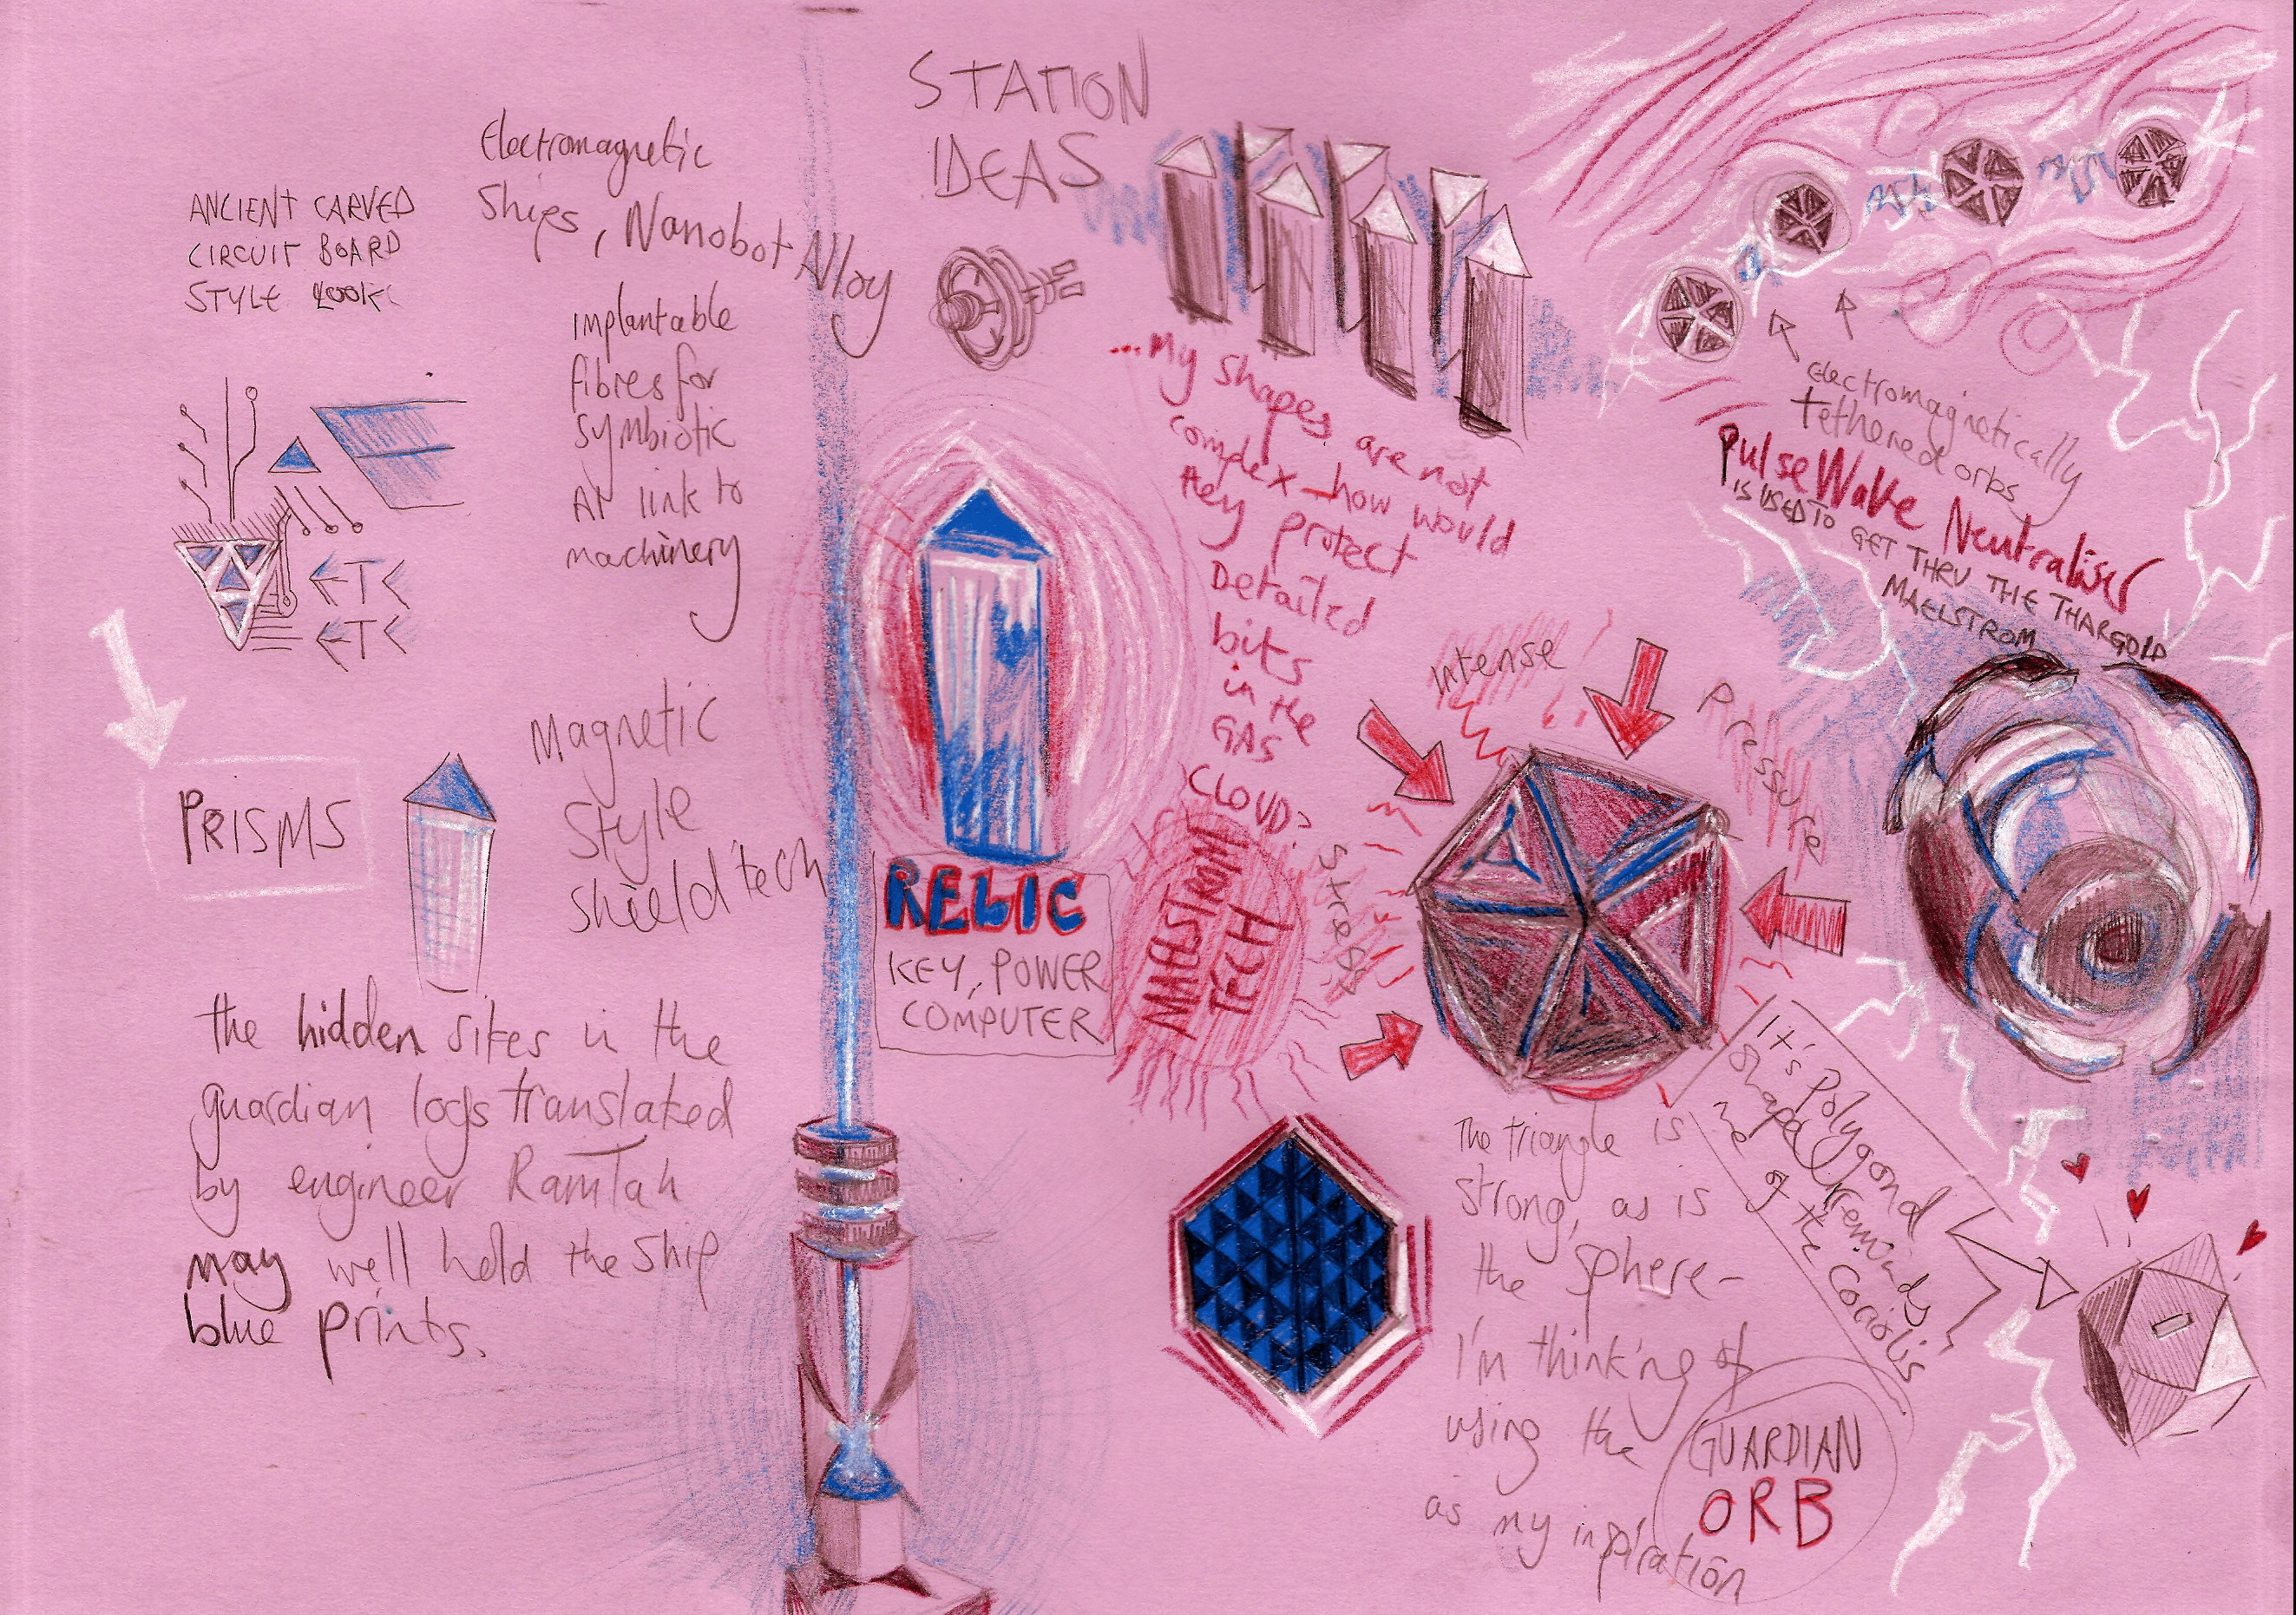 STATION
IDEAS
Electromagnetic
Ships, Nanobot Alloy
ANCIENT CARVED
CIRCUIT BOARD
STYLE LOOK
Implantable
fibres for
symbiotic
AI link to
machinery
ETC
ETC
PRISMS
Magnetic
Style
Shield tech
the hidden sites in the
guardian logs translated
by engineer RamTah
may well hold the ship
blue prints.
RELIC
KEY, POWER
COMPUTER
...My shapes are not
complex - how would
they protect
Detailed
bits
in the
GAS
CLOUD?
MAELSTROM
TECH
electromagnetically
tethered orbs
Pulse Wave Neutraliser
IS USED TO GET THRU THE THARGOID
MAELSTROM
Intense
Pressure
Stress
It's Polygond
shape reminds
me of the Coriolis
The triangle is
strong, as is
the sphere-
I'm thinking of
using the
GUARDIAN
ORB
as my inspiration